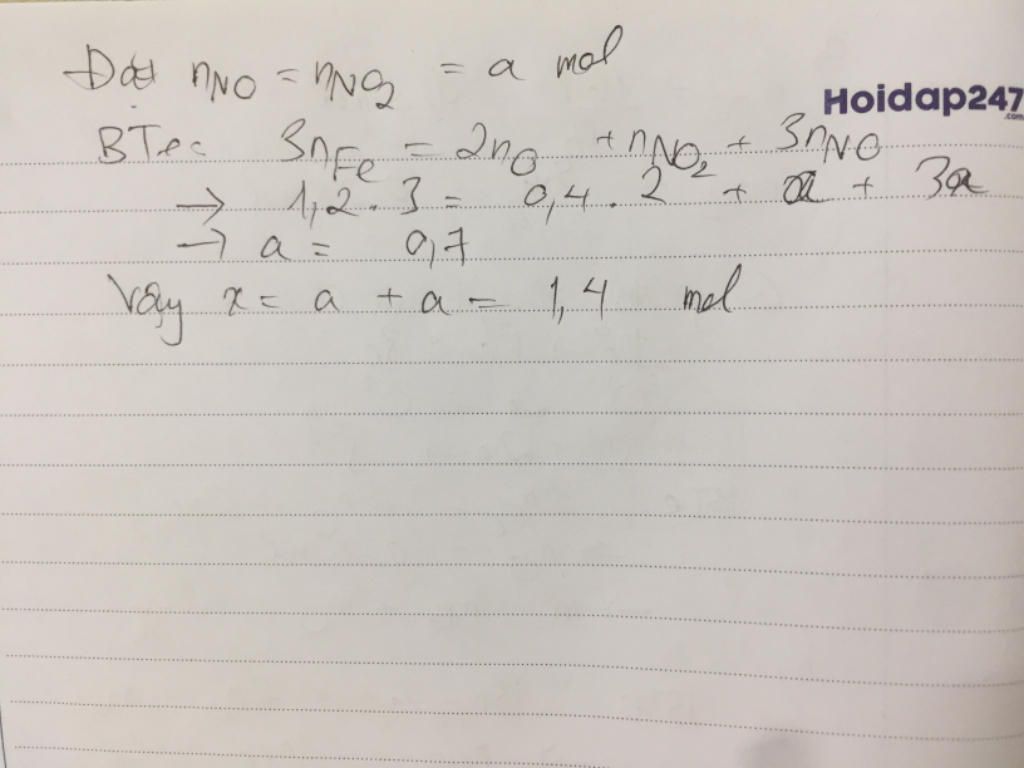 Đặt nNO = nNO2 = a mol
Hoidap247
.com
BTec 3nFe = 2nO + nNO2 + 3nNO
→ 1,2 . 3 = 0,4 . 2 + a + 3a
→ a = 0,7
Vậy x = a + a = 1,4 mol